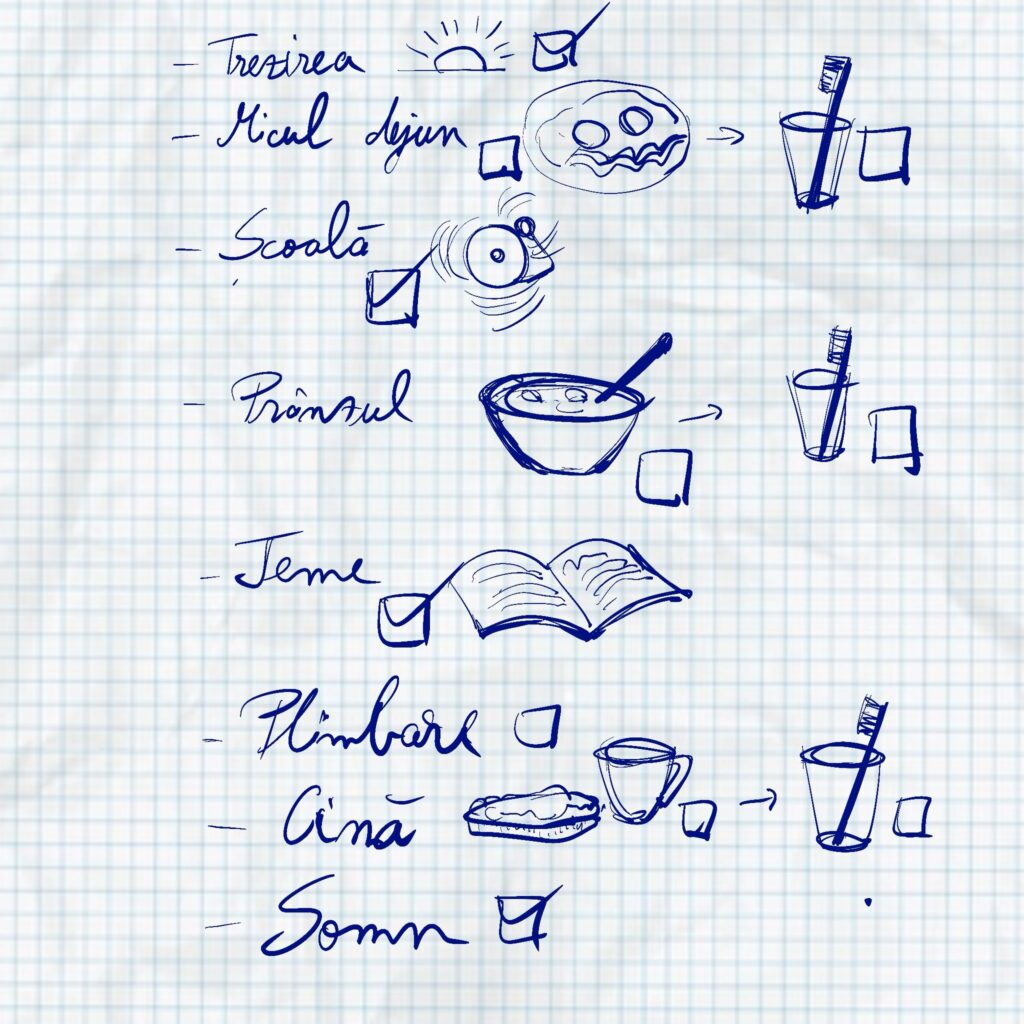 - Trezirea
- Micul dejun
- Școală
- Prânzul
- Teme
- Plimbare
- Cină
- Somn